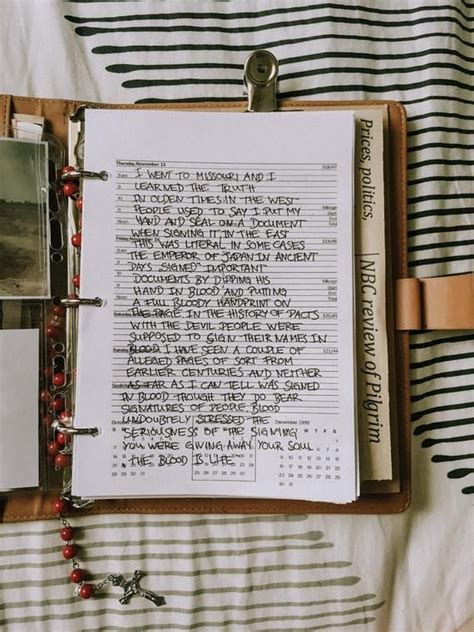 Thursday, November 15
I WENT TO MISSOURI AND I
LEARNED THE TRUTH
IN OLDEN TIMES IN THE WEST
PEOPLE USED TO SAY I PUT MY
HAND AND SEAL ON A DOCUMENT
WHEN SIGNING IT IN THE EAST
THIS WAS LITERAL IN SOME CASES
THE EMPEROR OF JAPAN IN ANCIENT
DAYS "SIGNED" IMPORTANT
DOCUMENTS BY DIPPING HIS
HAND IN BLOOD AND PUTTING
A FULL BLOODY HANDPRINT ON
THE PAGE IN THE HISTORY OF PACTS
WITH THE DEVIL PEOPLE WERE
SUPPOSED TO SIGN THEIR NAMES IN
BLOOD I HAVE SEEN A COUPLE OF
ALLEGED PAGES OF SORT FROM
EARLIER CENTURIES AND NEITHER
AS FAR AS I CAN TELL WAS SIGNED
IN BLOOD THOUGH THEY DO BEAR
SIGNATURES OF PEOPLE BLOOD
October
December 1990
UNDOUBTELY STRESSED THE
SERIOUSNESS OF THE SIGNING
YOU WERE GIVING AWAY YOUR SOUL
THE BLOOD IS LIFE
Mileage
Start
End
Prices, politics,
NBC review of Pilgrim